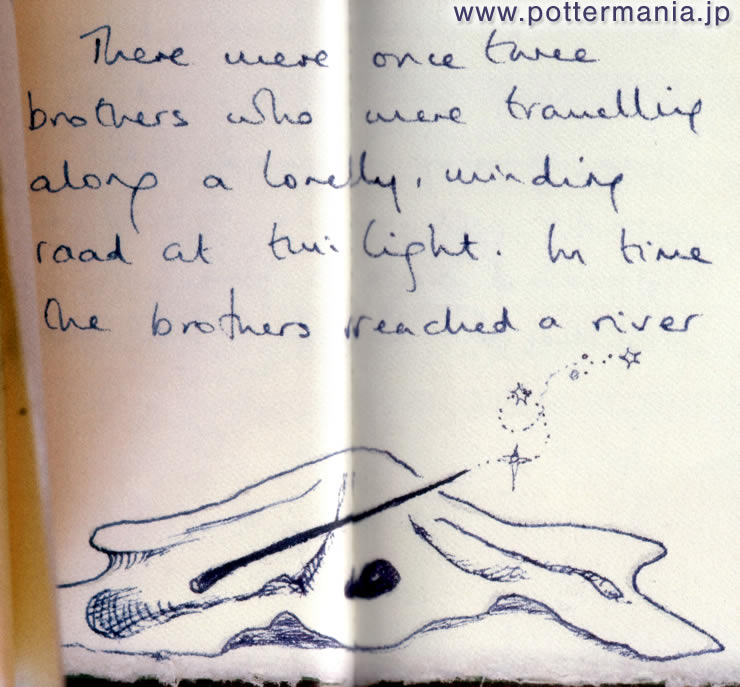 www.pottermania.jp
There were once three
brothers who were travelling
along a lonely, winding
road at twilight. In time
the brothers reached a river